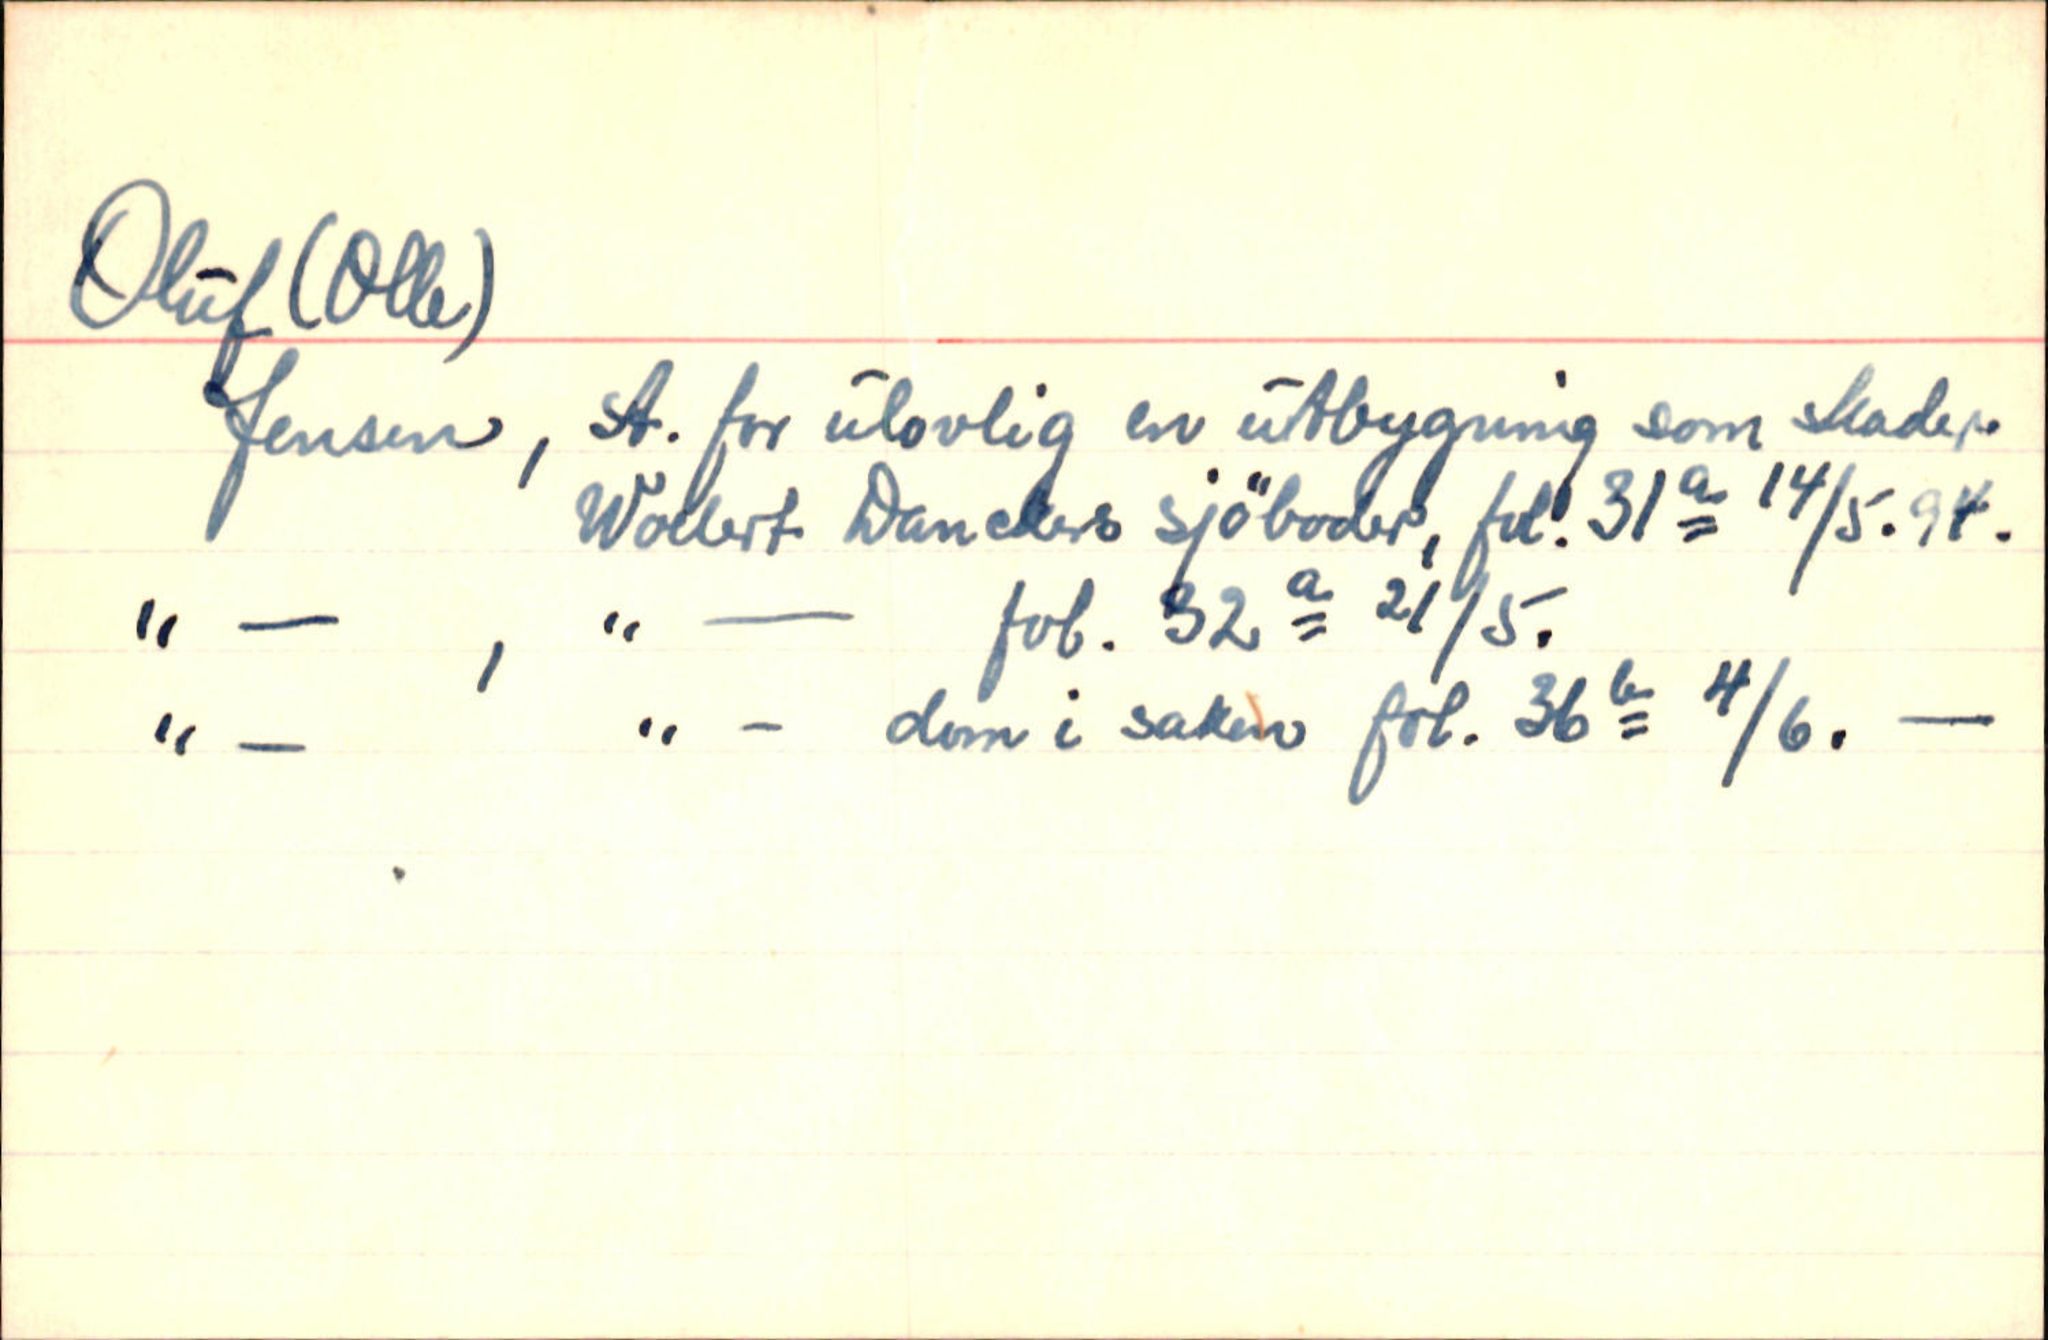 Oluf (Olle)
Jensen, st. for ulovlig en utbygning som skader
Wollert Danckers sjöboder, fol. 31 a 14/5. 94.
" — , " — fol. 32 a 21/5.
" — " - dom i saken fol. 36 b 4/6. —